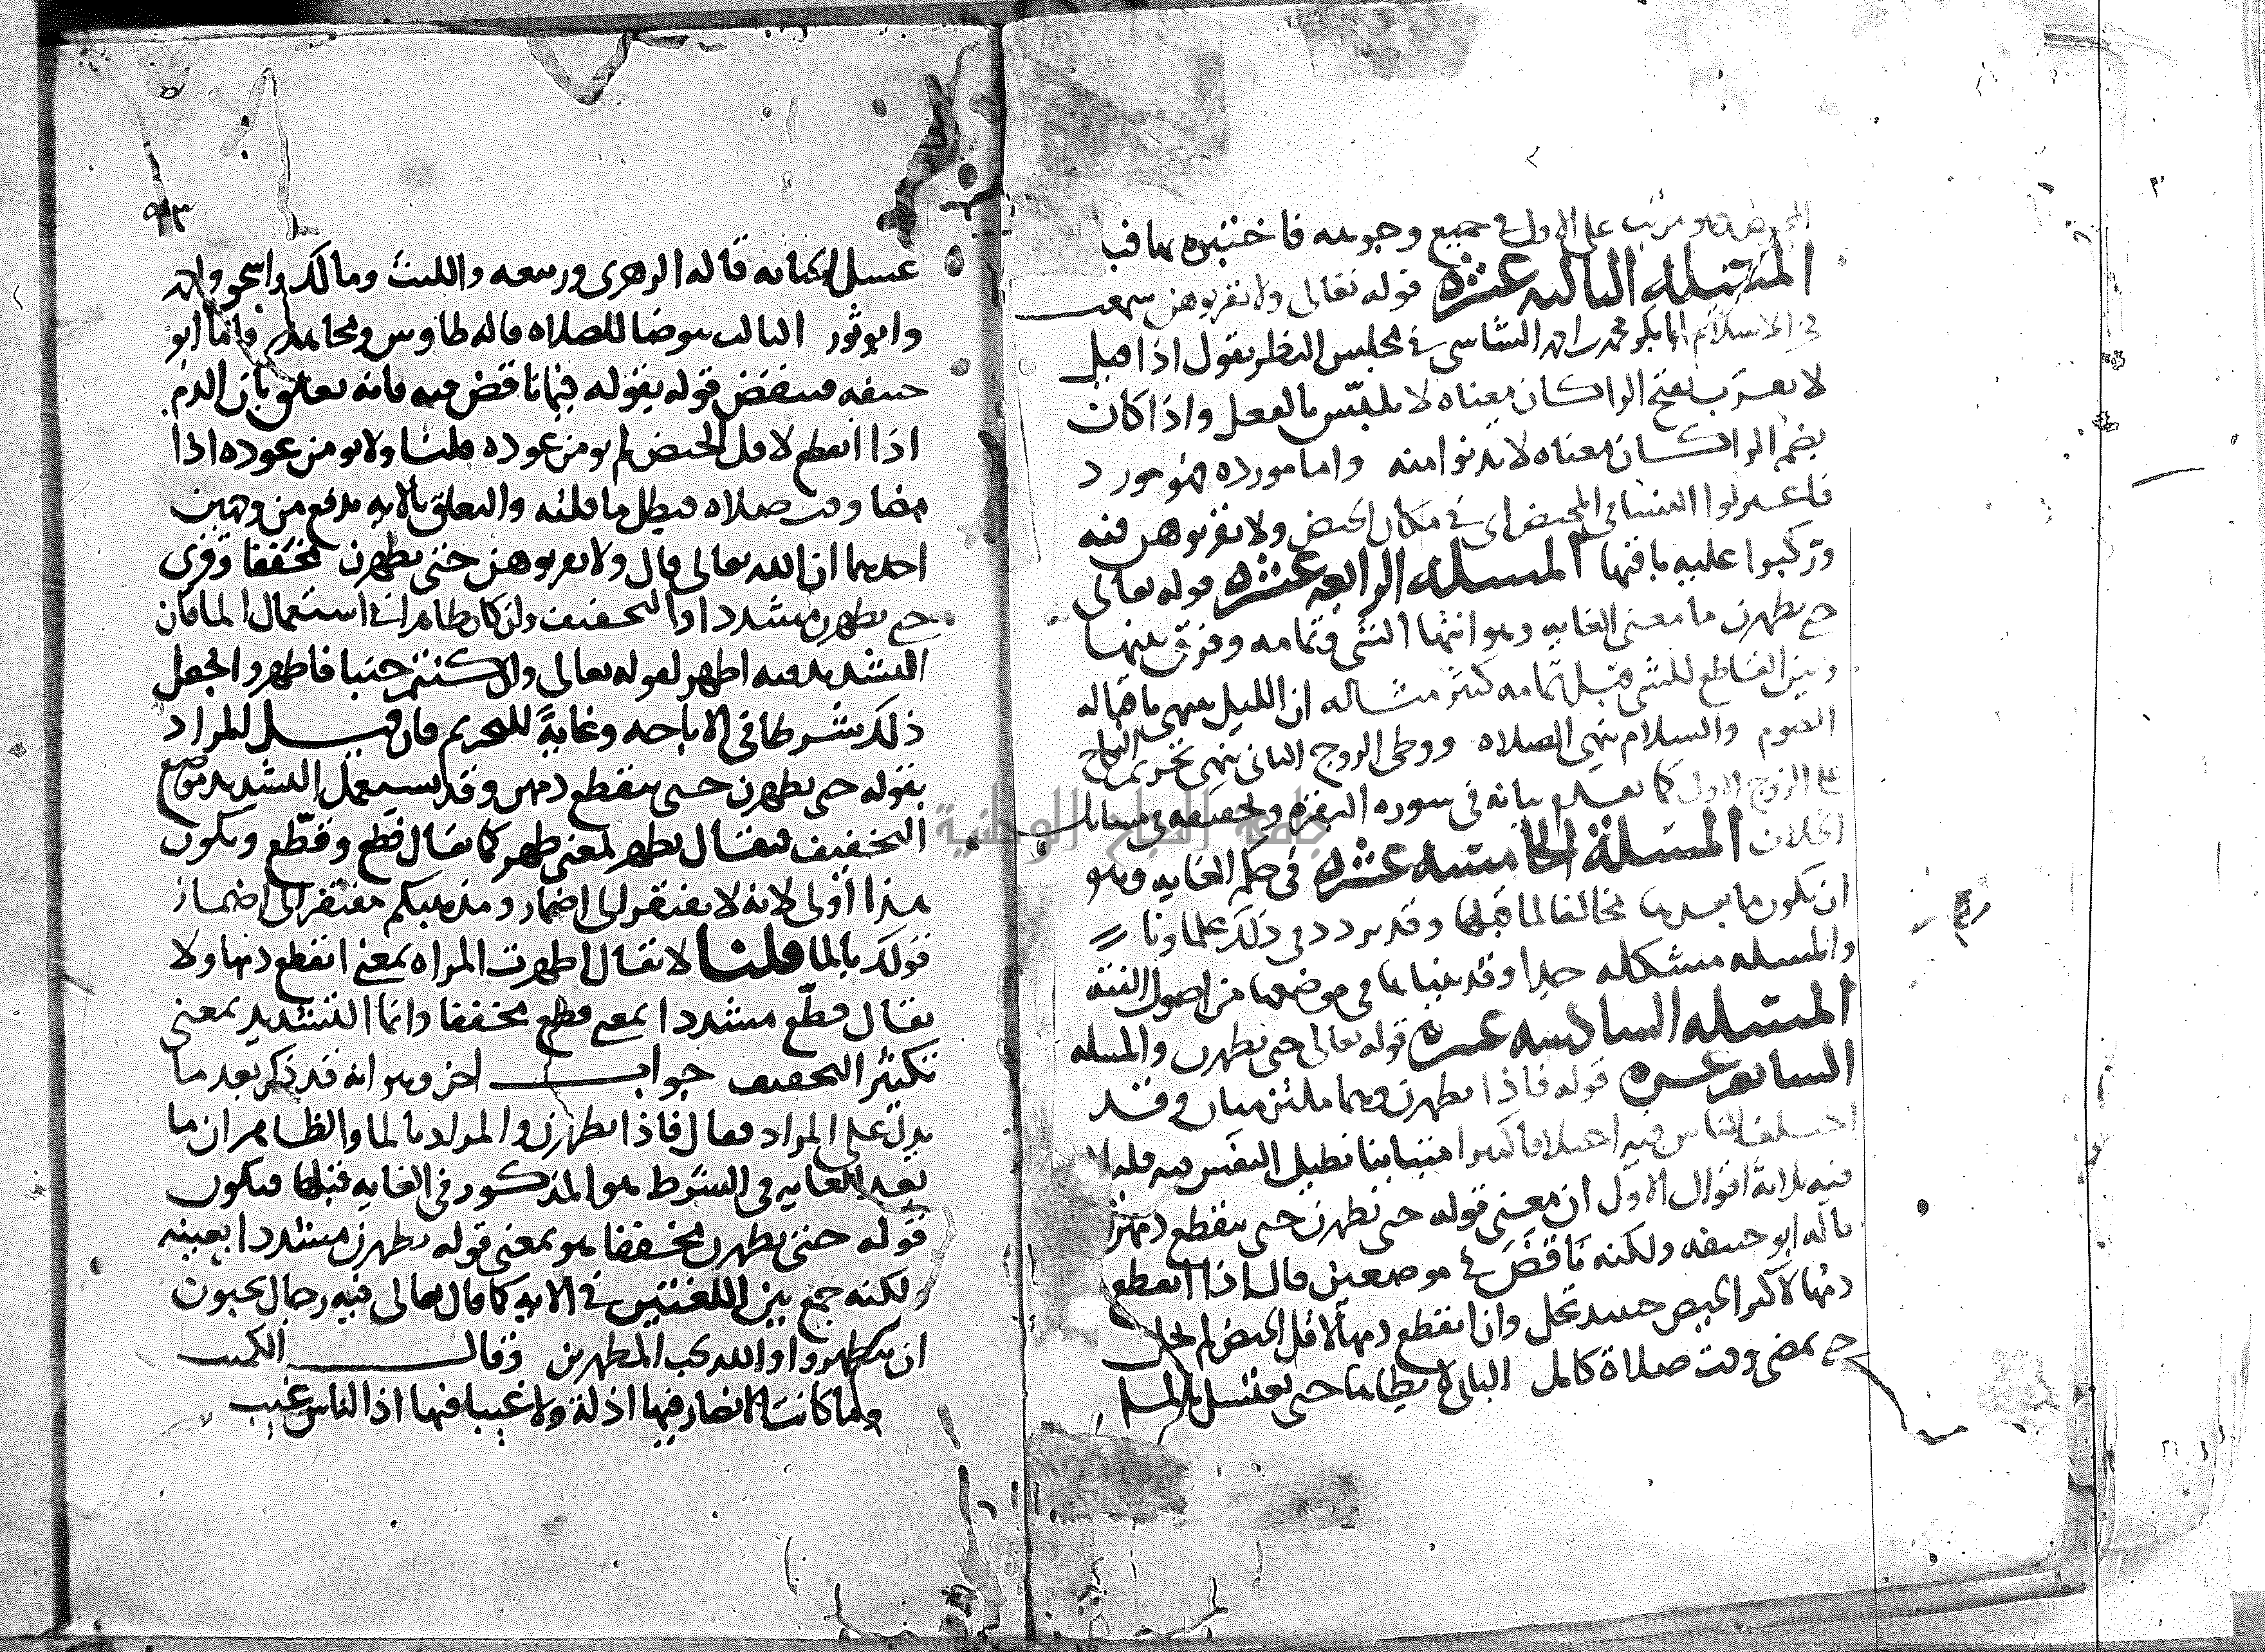 المحيض وهو مرتب على الاول في جميع وجوهه فاختبره بما فيه
المسئلة الثالثة عشرة قوله تعالى ولا تقربوهن سمعت
فخر الاسلام ابا بكر محمد بن احمد الشاشي في مجلس النظر يقول اذا قيل
لا تقرَب بفتح الرا كان معناه لا تلبّس بالفعل واذا كان
بضم الرا كان معناه لا تدنوا منه واما مورده فهو مورد
فاعتزلوا النسا في المحيض اي في مكان الحيض ولا تقربوهن فيه
وركبوا عليه باقيها المسئلة الرابعة عشرة قوله تعالى
حتى يطهرن ما معنى الغاية وهو انتها الشي وتمامه وفرق بينها
وبين القاطع للشي قبل تمامه كثير مثاله ان الليل ينهي باقباله
الصوم والسلام ينهي الصلاة ووطى الزوج الثاني ينهي تحريم النكاح
على الزوج الاول كما تقدم بيانه في سورة البقرة وتحقيقه في مسائل
الخلاف المسئلة الخامسة عشرة في حكم الغاية وهو
ان يكون ما بعدها مخالفا لما قبلها وقد تردد في ذلك علماونا
والمسئلة مشكلة جدا وقد بيناها في موضعها من اصول الفقه
المسئلة السادسة عشرة قوله تعالى حتى يطهرن والمسئلة
السابعة عشرة قوله فاذا تطهرن وهما ملتزمتان وقد
اختلف الناس فيه اختلافا كثيرا متباينا نطيل النفس فيه قليلا
فيه ثلاثة اقوال الاول ان معنى قوله حتى يطهرن حتى ينقطع دمهن
قاله ابو حنيفة ولكنه ناقَضَ في موضعين قال اذا انقطع
دمها لاكثر الحيض حينئذ تحل وان انقطع دمها لاقل الحيض لم تحل
حتى يمضي وقت صلاة كامل الثاني لا يطاها حتى تغتسل بالما
٩٣
غسل الجنابة قاله الزهري وربيعة والليث ومالك واسحق واحمد
وابو ثور الثالث تتوضا للصلاة قاله طاوس ومجاهد فاما ابو
حنيفة فينقض قوله بقوله فيما ناقض فيه فانه تعلق بان الدم
اذا انقطع لاقل الحيض لم يومن عوده قلنا ولا يومن عوده اذا
مضا وقت صلاة فبطل ما قلته والتعلق بالاية يدفع من وجهين
احدهما ان الله تعالى قال ولا تقربوهن حتى يطهرن مخففا وقرى
حتى يطهرن مشددا والتخفيف وان كان ظاهرا في استعمال الما فان
التشديد فيه اظهر لقوله تعالى وان كنتم جنبا فاطهروا فجعل
ذلك شرطا في الاباحة وغايةً للتحريم فان قيل المراد
بقوله حتى يطهرن حتى ينقطع دمهن وقد يستعمل التشديد موضع
التخفيف فيقال تطهر لمعنى طهر كما يقال قطع وقطّع ويكون
هذا اولى لانه لا يفتقر الى اضمار ومذهبكم مفتقر الى اضمار
قولك بالما قلنا لا يقال اطهرت المراه بمعنى انقطع دمها ولا
يقال قطّع مشددا بمعنى قطع مخففا وانما التشديد بمعنى
تكثير التخفيف جواب اخر وهو انه قد ذكر بعد ما
يدل على المراد فقال فاذا تطهرن والمراد بالما والظاهر ان ما
بعد الغاية في الشرط هو المذكور في الغاية قبلها فيكون
قوله حتى يطهرن مخففا هو بمعنى قوله يطهرن مشددا بعينه
ولكنه جمع بين اللغتين في الاية كما قال تعالى فيه رجال يحبون
ان يتطهروا والله يحب المطهرين وقال الكميت
وما كانت الانصار فيها اذلة ولا غيبا فيها اذا الناس غيب